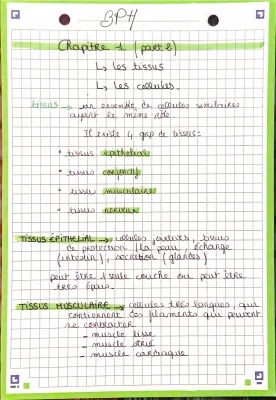 BPH
Chapitre 1 (part 2)
↳ les tissus
↳ les cellules.
tissus → un ensemble de cellules similaires
ayant le même rôle
Il existe 4 gap de tissus :
• tissus épithelial
• tissus conjonctif
• tissus musculaire
• tissus nerveux
TISSUS ÉPITHELIAL → cellules jointives, tissus
de protection (la peau, échange
(intestin), secretion (glandes)
peut être 1 seule couche ou peut être
très épais.
TISSUS MUSCULAIRE → cellules très longues, qui
contiennent des filaments qui peuvent
se contracter
- muscle lisse
- muscle strié
- muscle cardiaque